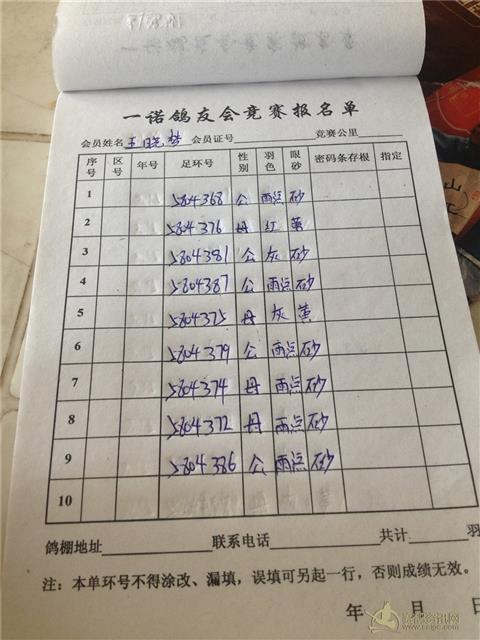 一诺鸽友会竞赛报名单
会员姓名 王晓梦 会员证号 竞赛公里
序号 区号 年号 足环号 性别 羽色 眼砂 密码条存根 指定
1 5804368 公 雨点 砂
2 5804376 母 红 黄
3 5804381 公 灰 砂
4 5804387 公 雨点 砂
5 5804375 母 灰 黄
6 5804379 公 雨点 砂
7 5804374 母 雨点 砂
8 5804372 母 雨点 砂
9 5804386 公 雨点 砂
10
鸽棚地址 联系电话 共计 羽
注：本单环号不得涂改、漏填，误填可另起一行，否则成绩无效。
年 月 日